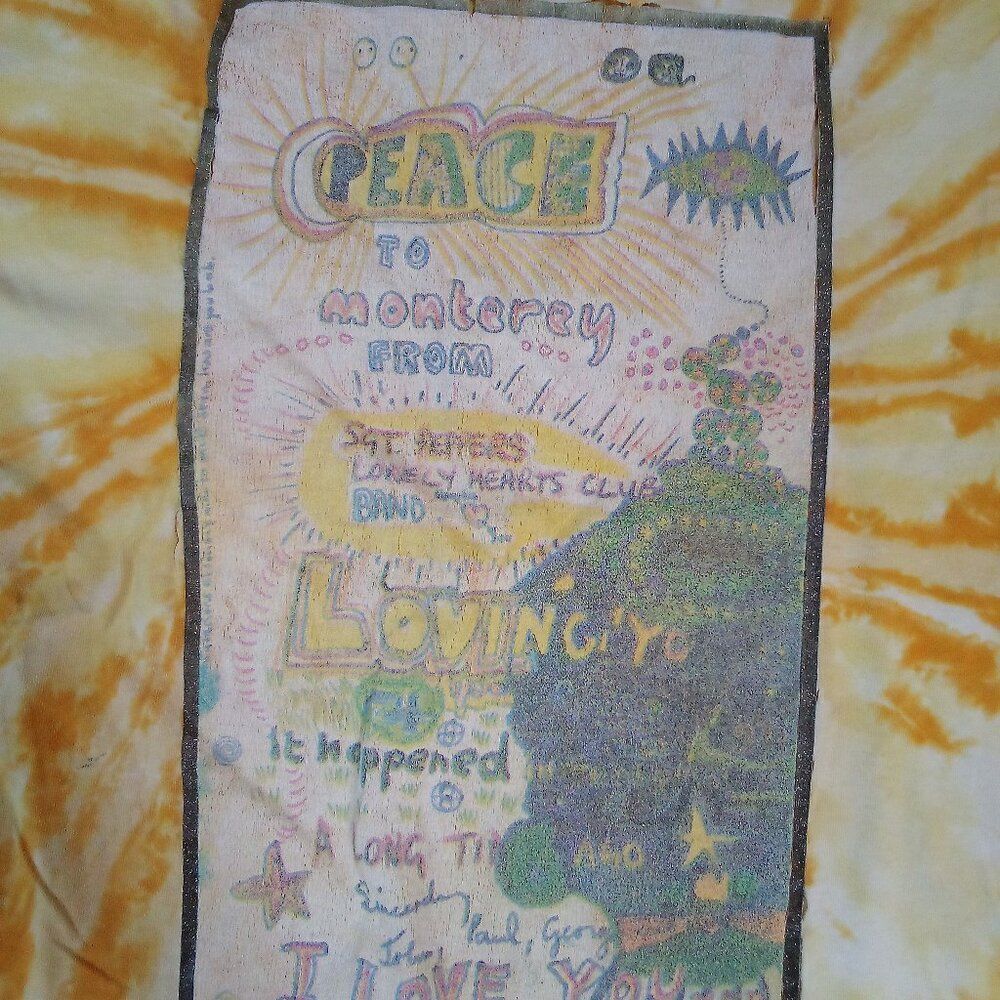 PEACE
TO
monterey
FROM
SGT. PEPPERS
LONELY HEARTS CLUB
BAND
LOVING YO
it happened
A LONG TIM AGO
Sincerely
John, Paul, Georg
I LOVE YOU